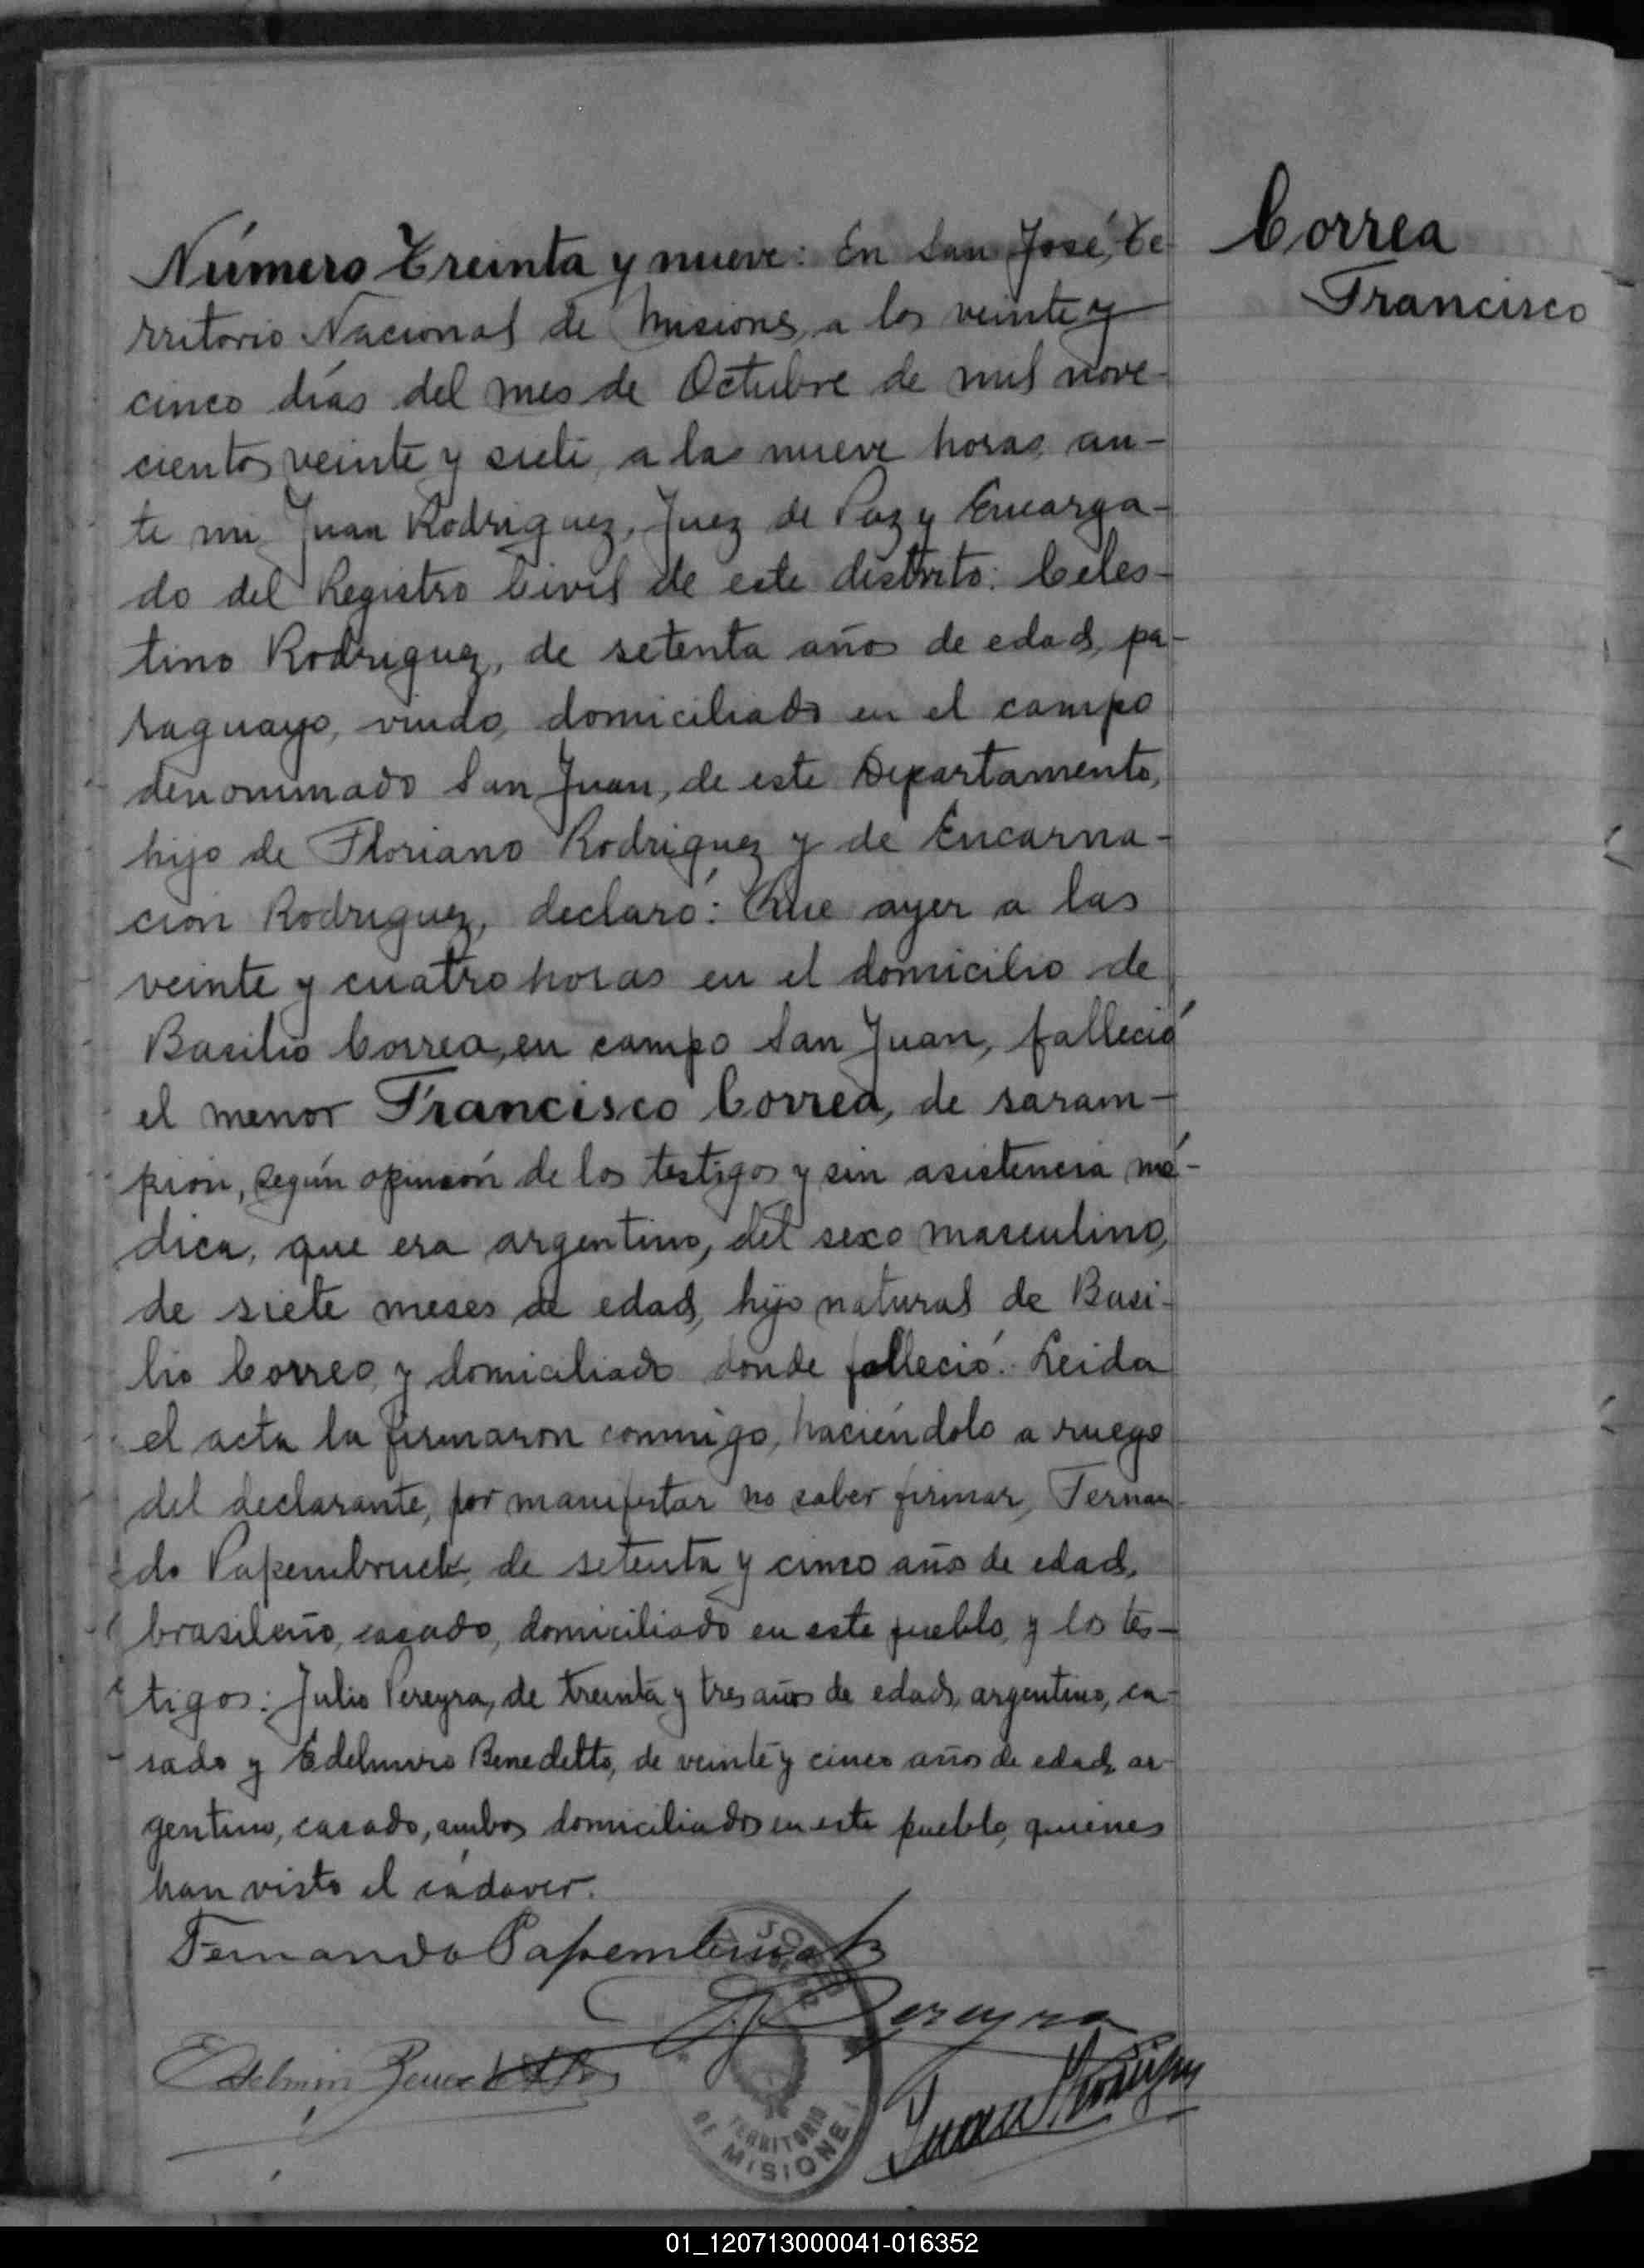 Correa
Francisco
Número Treinta y nueve: En San José, Te-
rritorio Nacional de Misiones, a los veinte y
cinco días del mes de Octubre de mil nove-
cientos veinte y siete, a las nueve horas, an-
te mi Juan Rodriguez, Juez de Paz y Encarga-
do del Registro Civil de este distrito: Celes-
tino Rodriguez, de setenta años de edad, pa-
raguayo, viudo, domiciliado en el campo
denominado San Juan, de este Departamento,
hijo de Floriano Rodriguez y de Encarna-
cion Rodriguez, declaró: Que ayer a las
veinte y cuatro horas en el domicilio de
Basilio Correa, en campo San Juan, falleció
el menor Francisco Correa, de saram-
pion, según opinión de los testigos y sin asistencia mé-
dica, que era argentino, del sexo masculino,
de siete meses de edad, hijo natural de Basi-
lio Correa y domiciliado donde falleció. Leida
el acta la firmaron conmigo, haciéndolo a ruego
del declarante, por manifestar no saber firmar, Fernan-
do Papembruck, de setenta y cinco años de edad,
brasileño, casado, domiciliado en este pueblo, y los tes-
tigos: Julio Pereyra, de treinta y tres años de edad, argentino, ca-
sado y Edelmiro Benedetto, de veinte y cinco años de edad, ar-
gentino, casado, ambos domiciliados en este pueblo, quienes
han visto el cádaver.
Fernando Papembruck
J. Pereyra
Edelmiro Benedetto
Juan Rodriguez
TERRITORIO
DE MISIONES
01_120713000041-016352